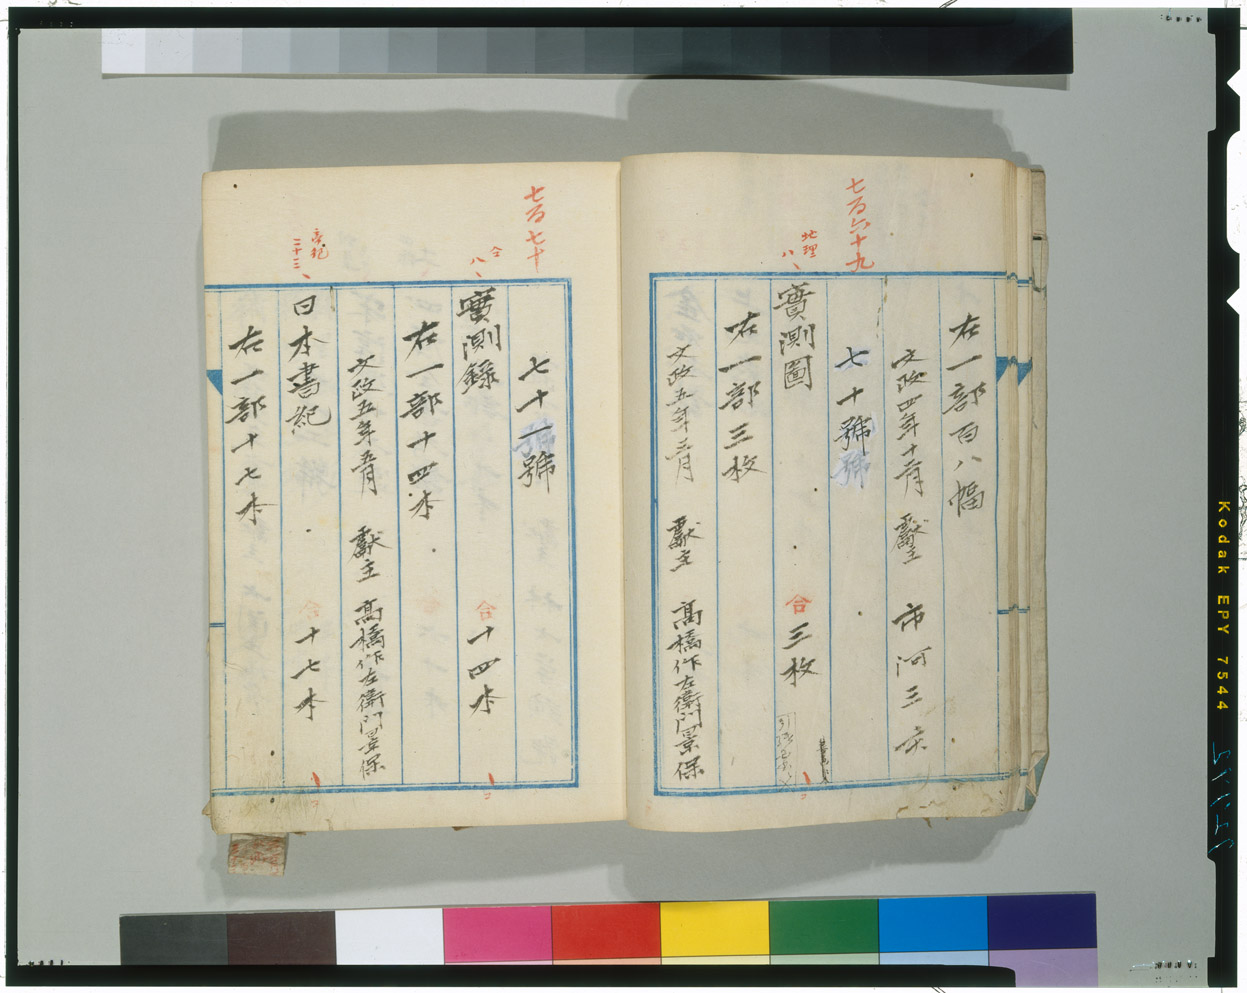 右一部百八幅
文政四年十一月 獻主 市河三亥
七百六十九
七十號
地理
八
實測圖 合三枚
右一部三枚
文政五年三月 獻主 高橋作左衛門景保
七百七十
七十一號
仝
八
實測錄 合十四本
右一部十四本
文政五年五月 獻主 高橋作左衛門景保
帝紀
二十三
日本書紀 合十七本
右一部十七本
Kodak EPY 7544